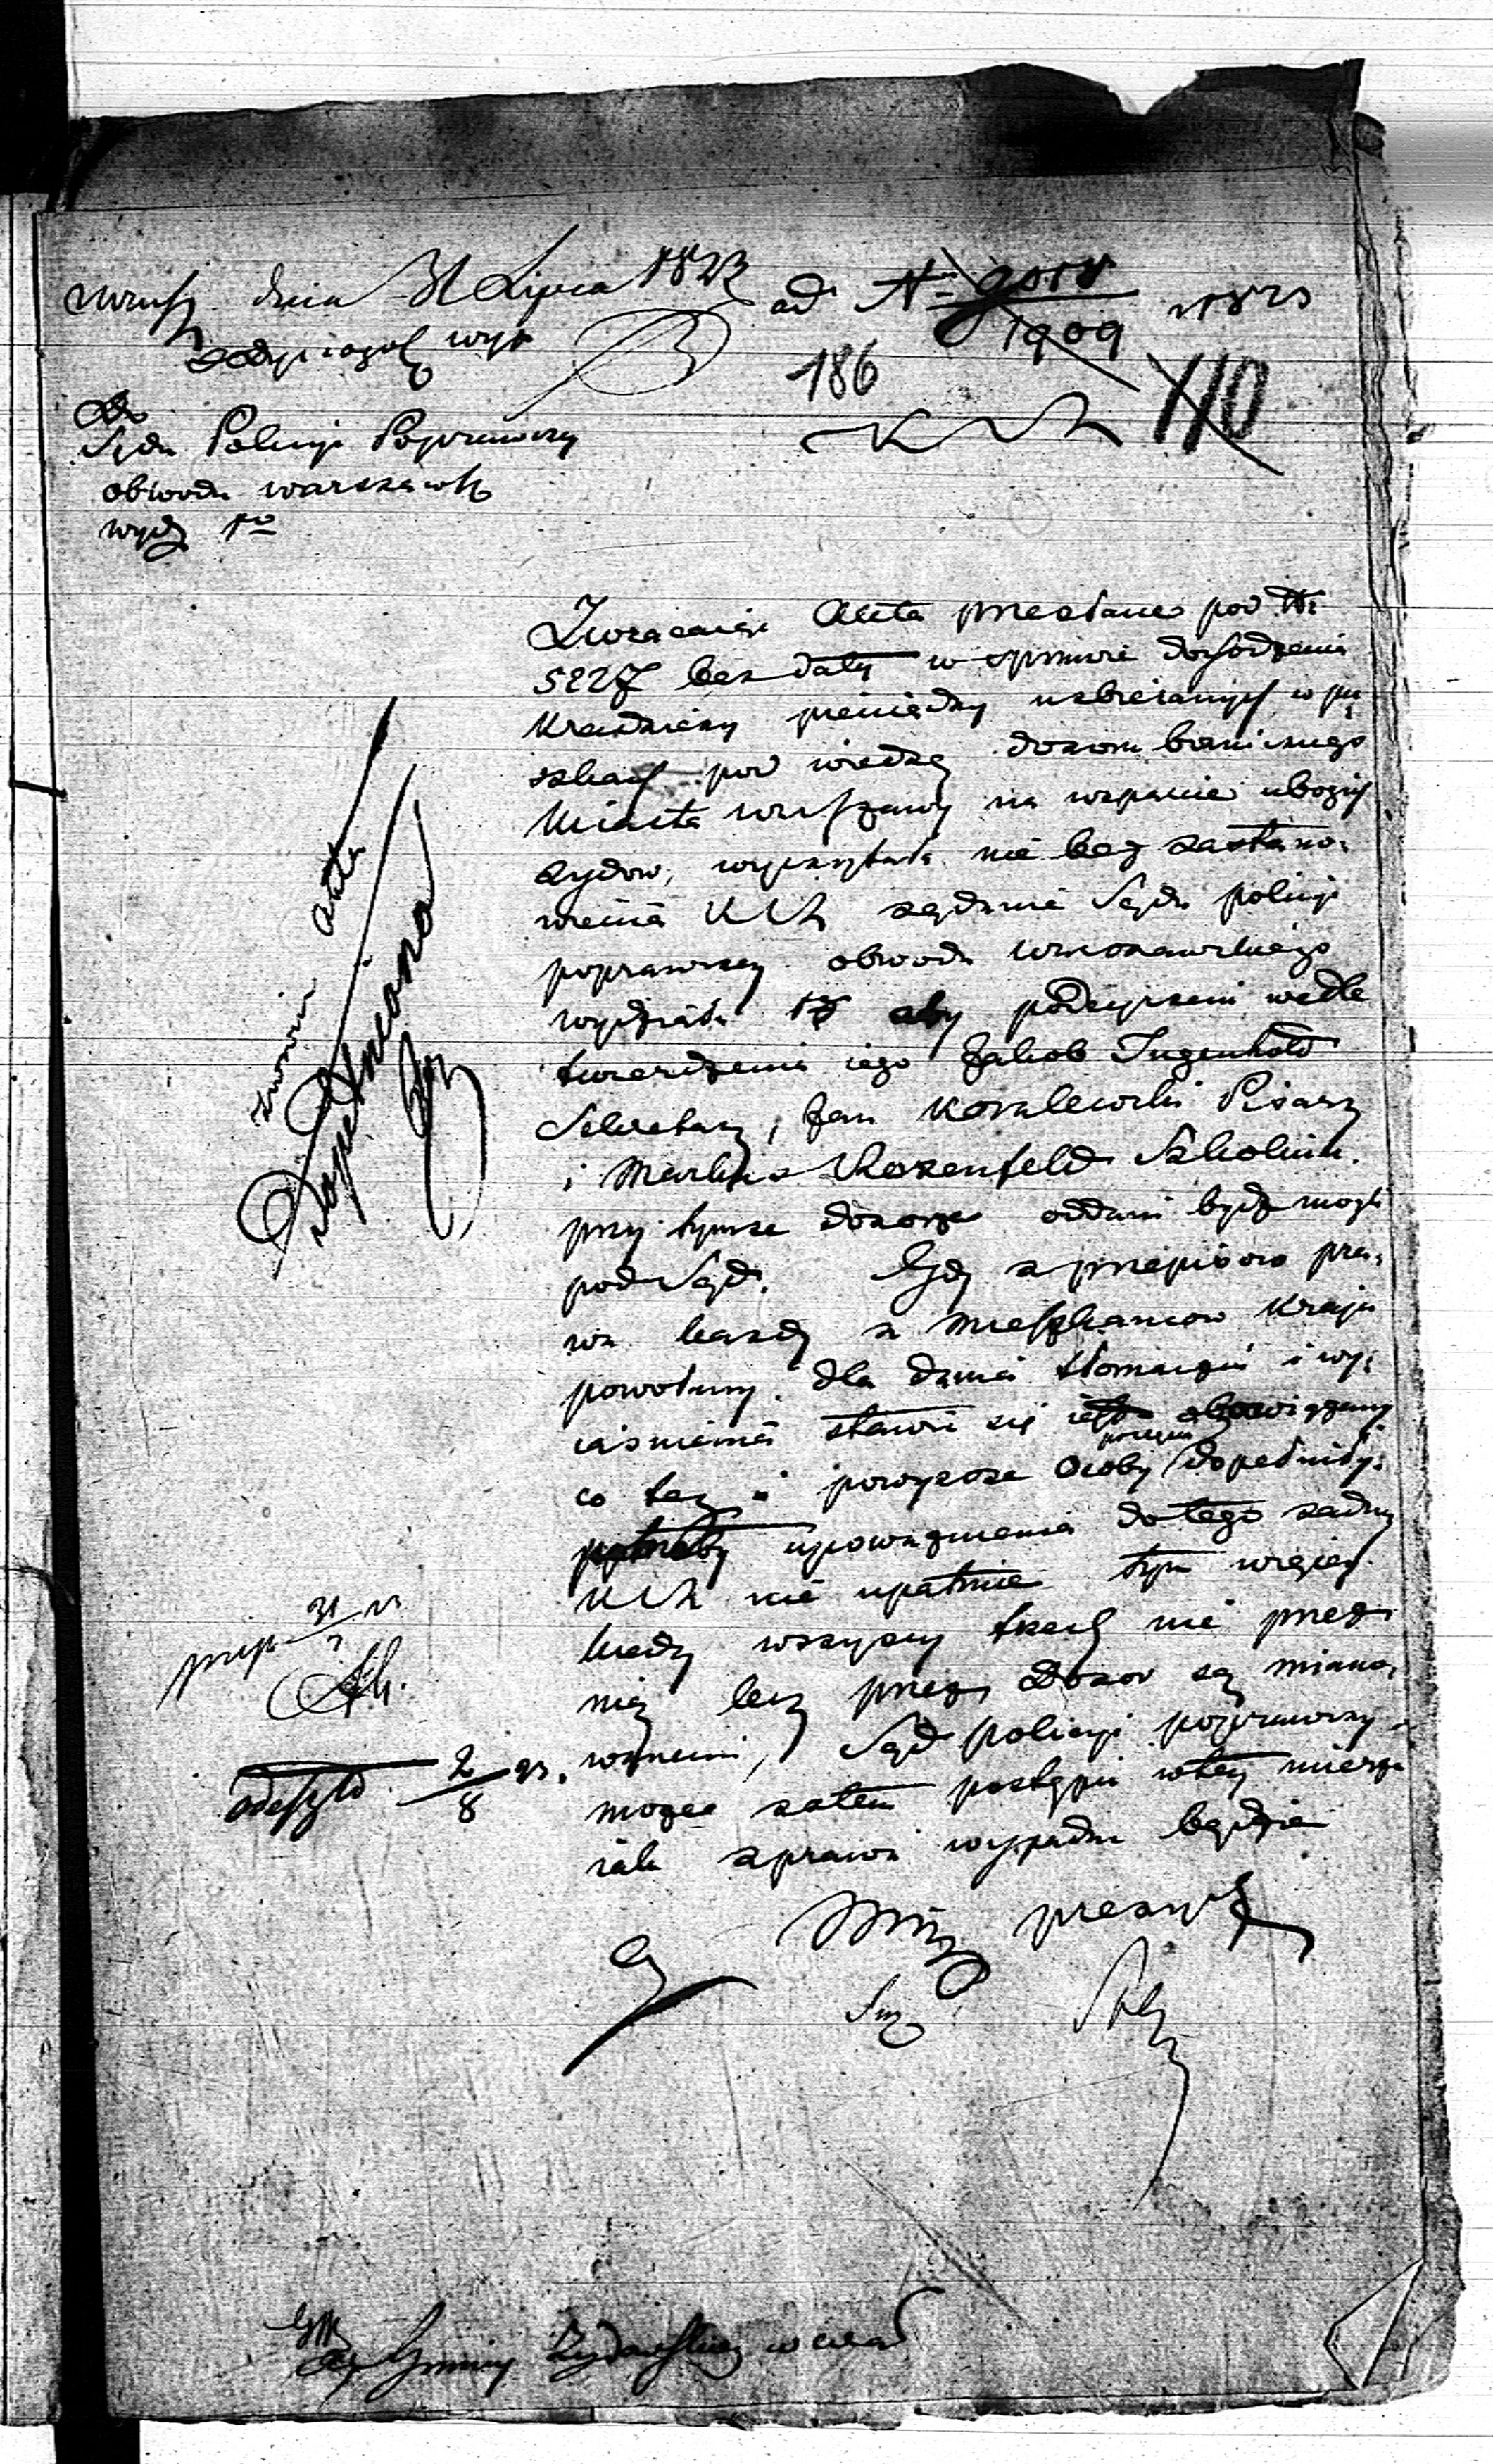 dnia 31 Lipca 1823
ad N 9018/1909 1823
186
110
Do
Sądu Policyi Poprawczy
obwodu warszawsk
wydz 1o
Zwracaiąc Akta przesłane pod Nr
5227 bez daty w sprawie dochodzenia
kradzieży pieniędzy uzbieranych w pu
szkach pod wiedzą dozoru boznicznego
Miasta Warszawy na wsparcie ubogich
zydow, wyczytała nie bez zastano
wienia żądanie Sądu policyi
poprawczej obwodu warszawskiego
wydziału 1o aby podeyrzeni wedle
twierdzenia iego Jakob Tugenhold
Sekretarz, Jan Kowalewski Pisarz
i Markus Rozenfeld Szkolnik
przy tymże dozorze oddani bydz mogli
pod Sąd. Gdy z przepisow pra
wa kazdy z mieszkancow kraju
powołany dla dania tłomaczeń i wy
iasnienia stawić się iest obowiązany
co tez i powyzsze osoby dopełniły
potrzeby upowaznienia do tego zadny
nie upatruie tym więcej
kiedy wszyscy trzech nie przez
nią lecz przez Dozor są miano
wanemi, Sąd policyi poprawczy
może zatem postąpić w tey mierze
iak z prawa wypadnie będzie
zwrot akta
Dopełniono
31/7
odeszło 2/8 23.
Gminy Żydowskiey w